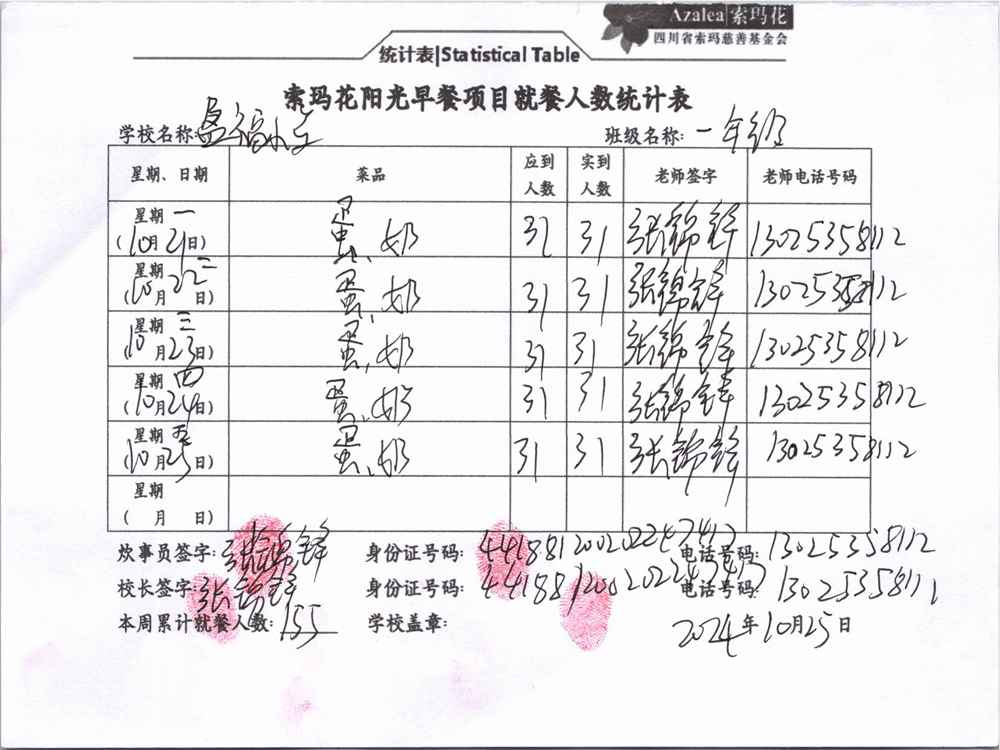 Azalea 索玛花
四川省索玛慈善基金会
统计表|Statistical Table
索玛花阳光早餐项目就餐人数统计表
学校名称: 盈福小学 班级名称: 一年级
星期、日期 菜品 应到人数 实到人数 老师签字 老师电话号码
星期一 (10月21日) 蛋、奶 31 31 张锦锋 13025358112
星期二 (10月22日) 蛋、奶 31 31 张锦锋 13025358112
星期三 (10月23日) 蛋、奶 31 31 张锦锋 13025358112
星期四 (10月24日) 蛋、奶 31 31 张锦锋 13025358112
星期五 (10月25日) 蛋、奶 31 31 张锦锋 13025358112
星期 ( 月 日)
炊事员签字: 张锦锋 身份证号码: 电话号码: 13025358112
校长签字: 张锦锋 身份证号码: 电话号码: 13025358112
本周累计就餐人数: 155 学校盖章: 2024年10月25日